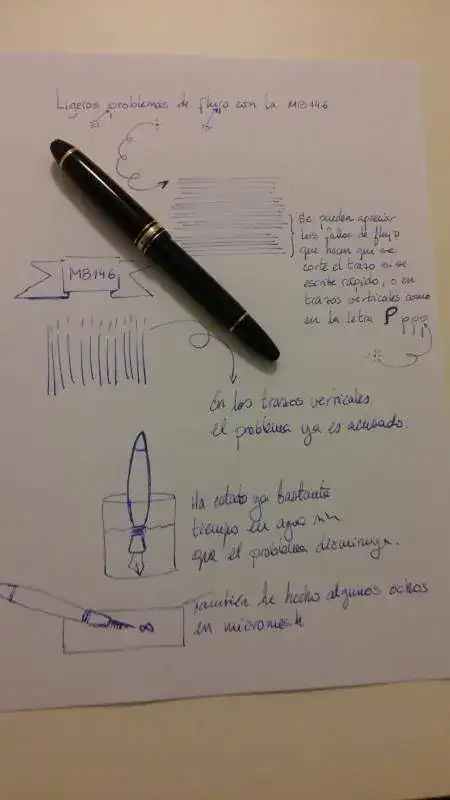 Ligeros problemas de flujo con la MB146
Se pueden apreciar
los fallos de flujo
que hacen que se
corte el trazo si se
escribe rápido, o en
trazos verticales como
en la letra P p p p
MB146
En los trazos verticales
el problema ya es acusado.
Ha estado ya bastante
tiempo en agua sin
que el problema disminuya.
También he hecho algunos ochos
en micromesh